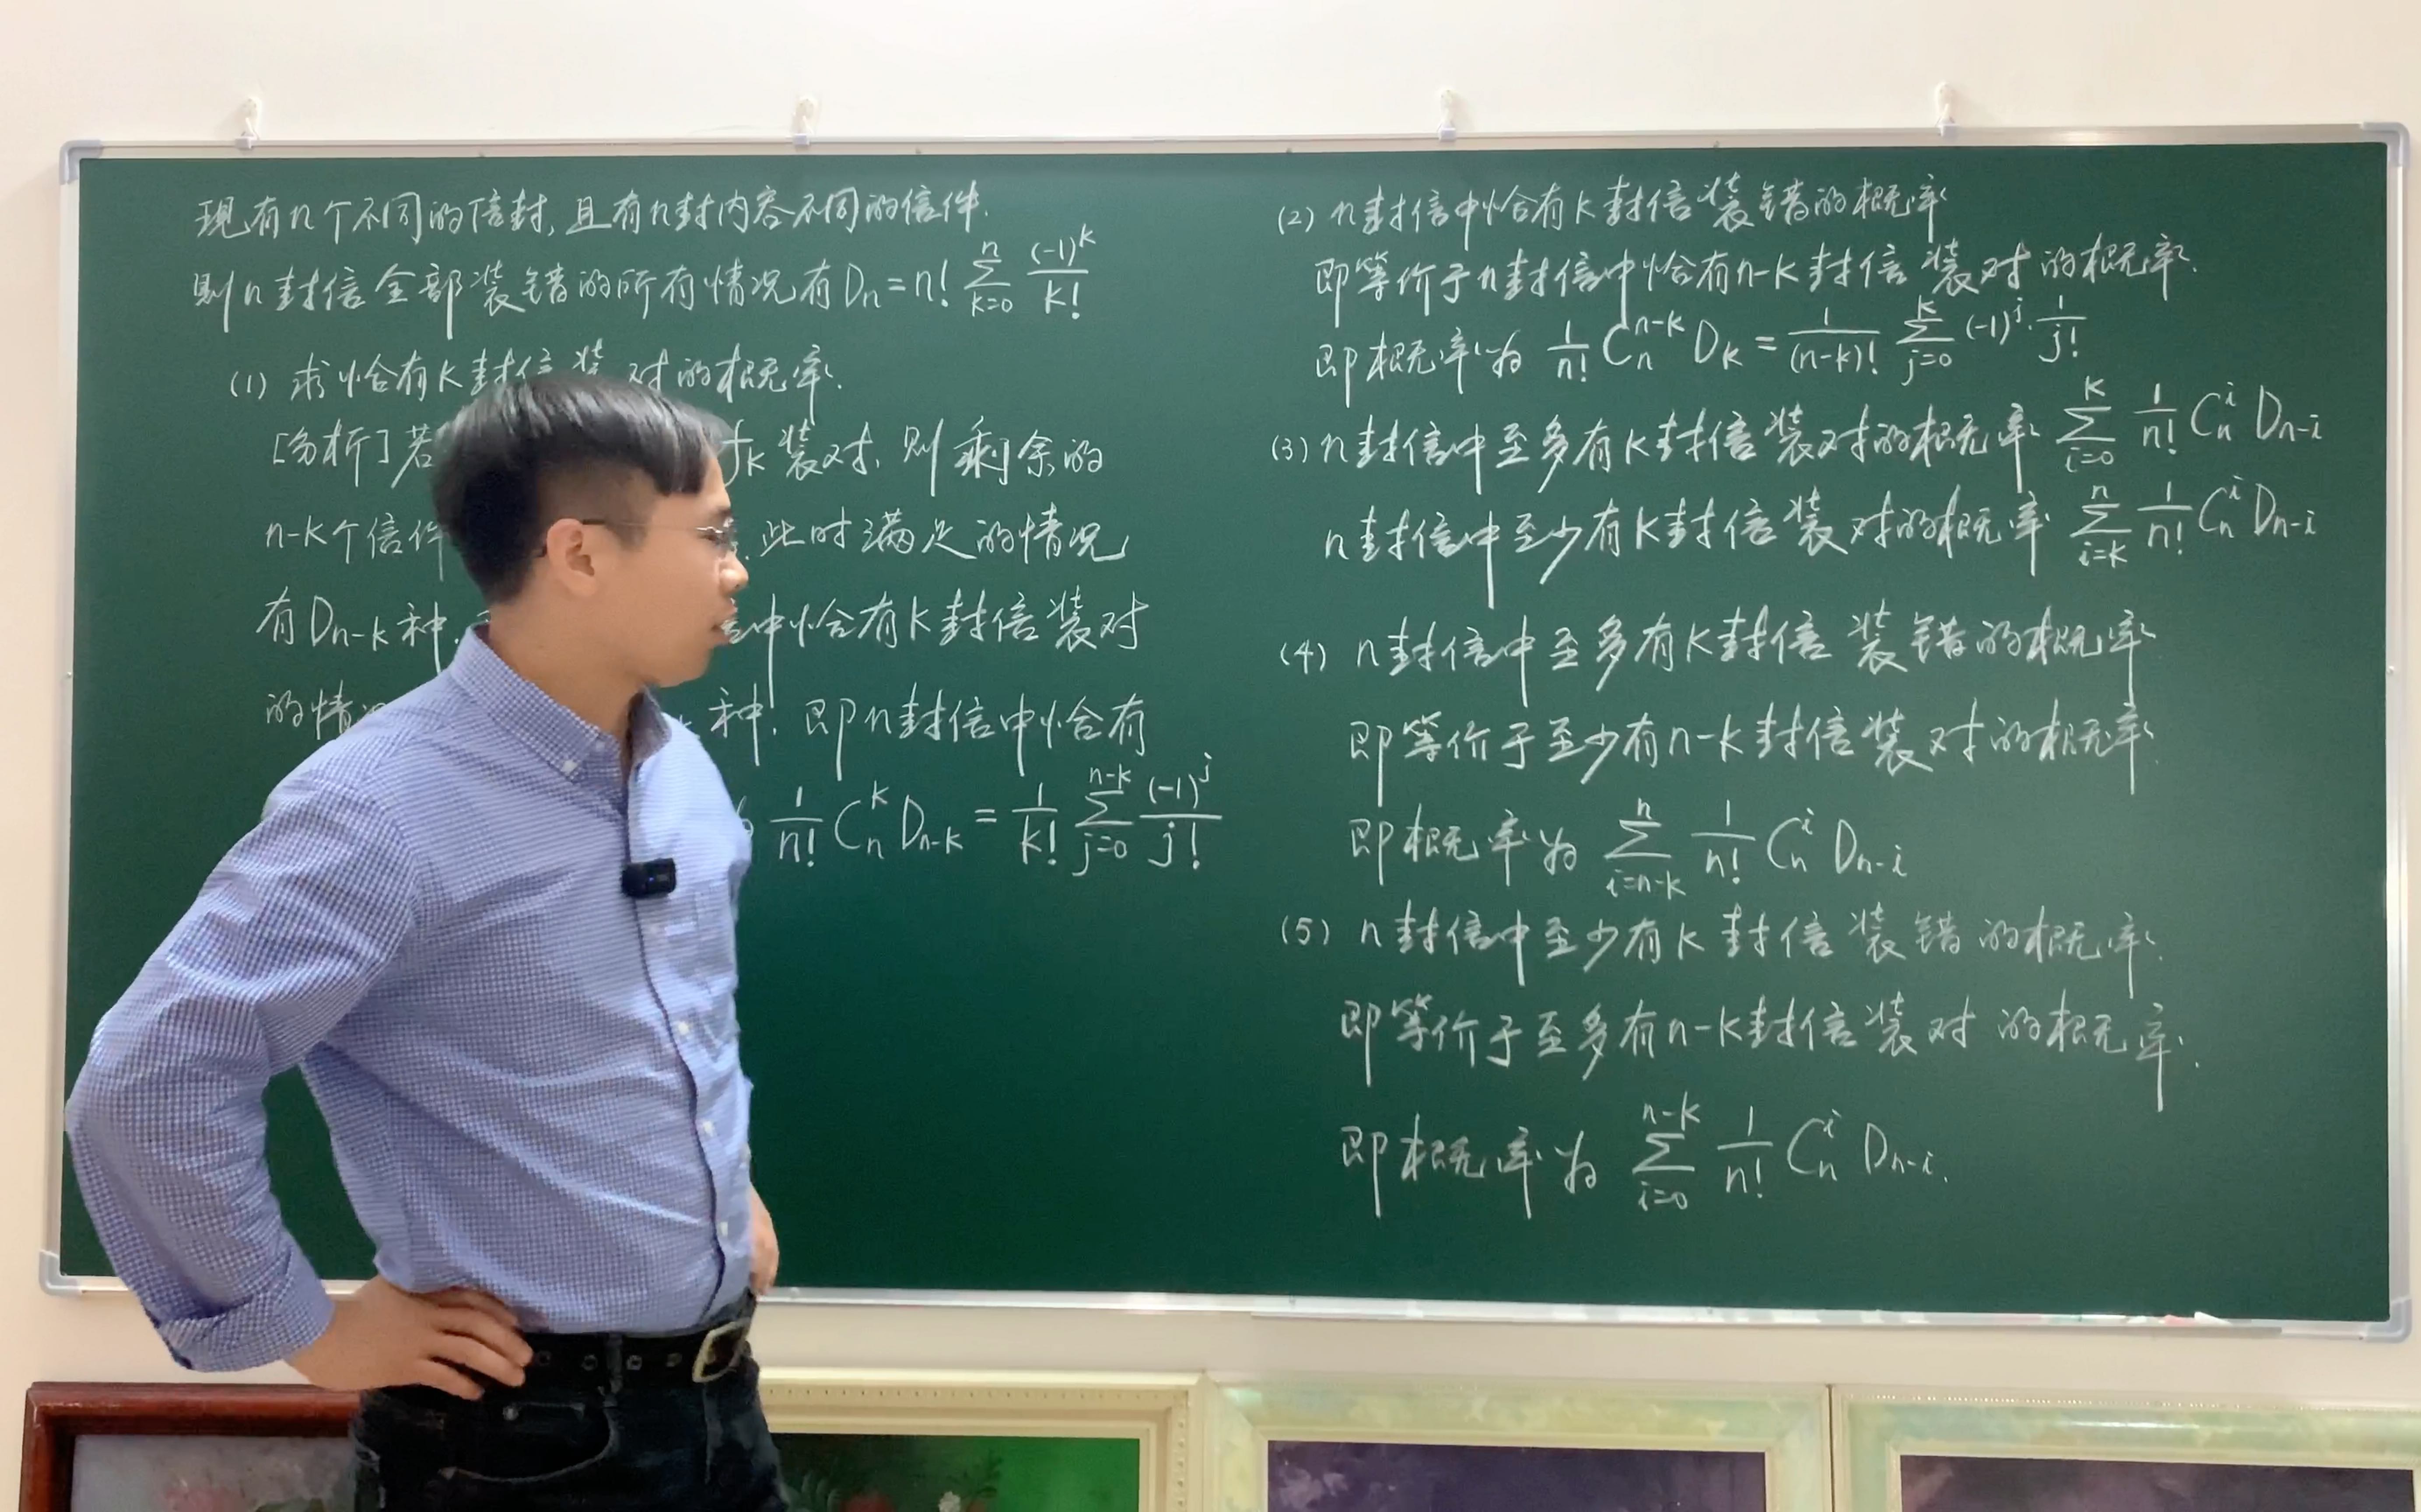 现有n个不同的信封,且有n封内容不同的信件.
则n封信全部装错的所有情况有Dn=n! \sum_{k=0}^{n} \frac{(-1)^k}{k!}
(1) 求恰有k封信装对的概率.
[分析]若 k装对,则剩余的
n-k个信件 .此时满足的情况
有D_{n-k}种. 信中恰有k封信装对
的情 种.即n封信中恰有
\frac{1}{n!} C_n^k D_{n-k} = \frac{1}{k!} \sum_{j=0}^{n-k} \frac{(-1)^j}{j!}
(2) n封信中恰有k封信装错的概率
即等价于n封信中恰有n-k封信装对的概率.
即概率为 \frac{1}{n!} C_n^{n-k} D_k = \frac{1}{(n-k)!} \sum_{j=0}^{k} (-1)^j \cdot \frac{1}{j!}
(3) n封信中至多有k封信装对的概率 \sum_{i=0}^{k} \frac{1}{n!} C_n^i D_{n-i}
n封信中至少有k封信装对的概率 \sum_{i=k}^{n} \frac{1}{n!} C_n^i D_{n-i}
(4) n封信中至多有k封信装错的概率
即等价于至少有n-k封信装对的概率
即概率为 \sum_{i=n-k}^{n} \frac{1}{n!} C_n^i D_{n-i}
(5) n封信中至少有k封信装错的概率.
即等价于至多有n-k封信装对的概率.
即概率为 \sum_{i=0}^{n-k} \frac{1}{n!} C_n^i D_{n-i}.